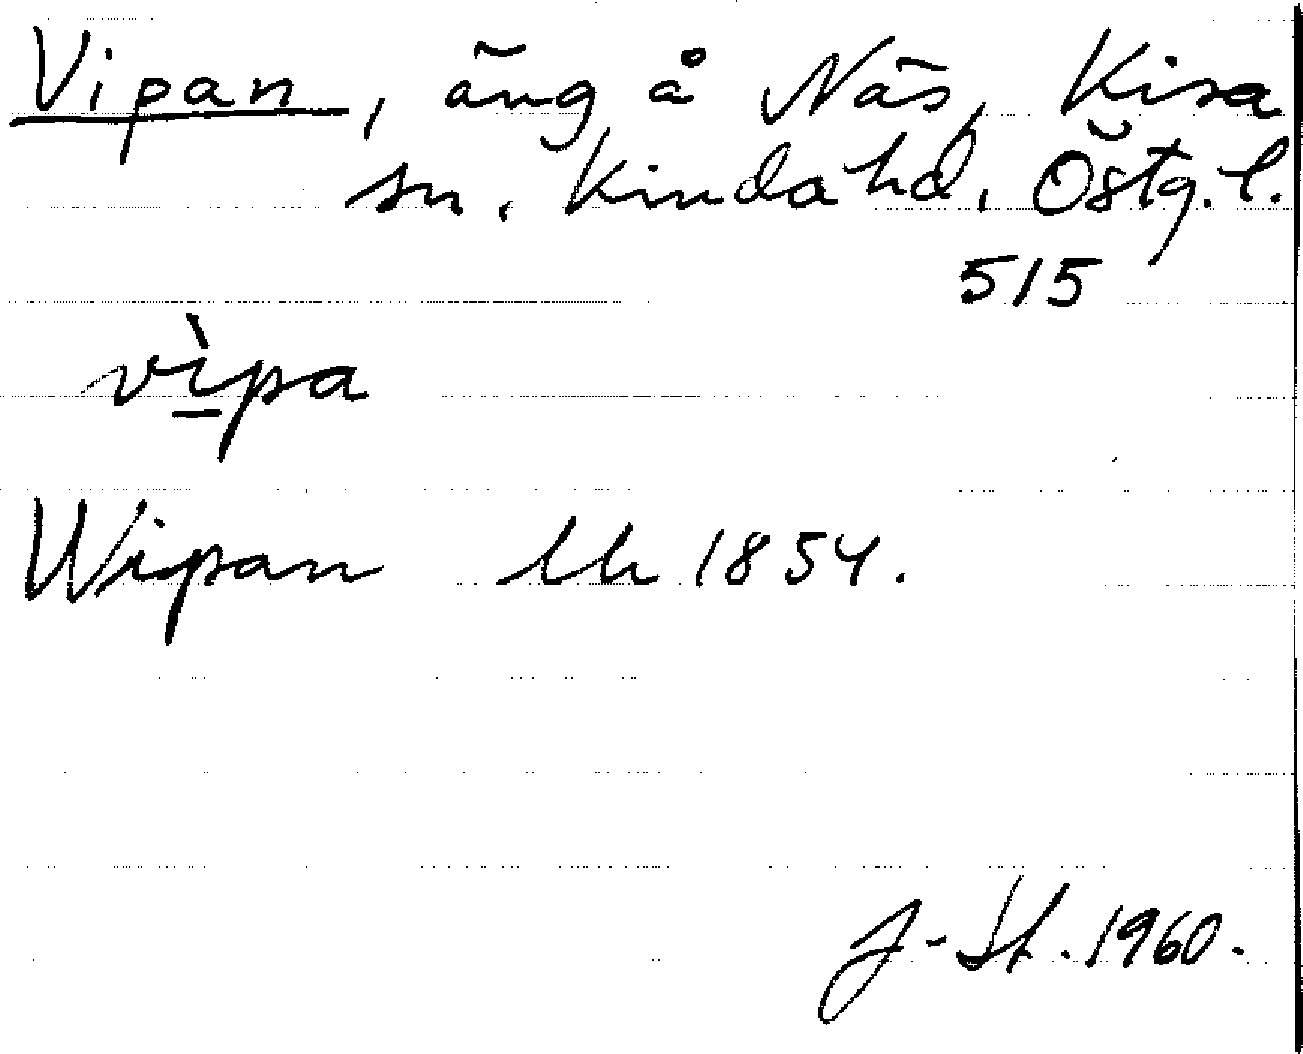 Vipan, äng å Näs, Kisa
sn. Kinda hd. Östg. l.
515
vì̱pa
Wipan Uh 1854.
1960.